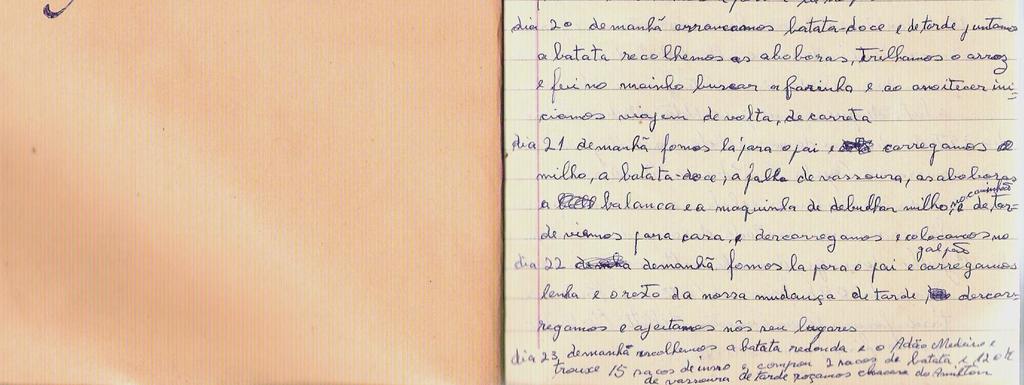 dia 20 demanhã arrancamos batata-doce e detarde juntamos
a batata recolhemos as aboboras, trilhamos o arroz
e fui no moinho buscar a farinha e ao anoitecer ini=
ciamos viajem de volta, de carreta
dia 21 demanhã fomos la para o pai e carregamos o
milho, a batata-doce, a palha de vassoura, as aboboras
a balanca e a maquinha de debulhar milho, no caminhão e de tar=
de viemos para casa, e descarregamos e colocamos no
galpão
dia 22 demanhã fomos la para o pai e carregamos
lenha e o resto da nossa mudança de tarde, descar=
regamos e ajeitamos nos seu lugares
dia 23, demanhã recolhemos a batata redonda e o Adão Medeiro e
trouxe 15 sacos de e comprou 2 sacos de batata e 120 K
de vassoura de tarde roçamos chacara do